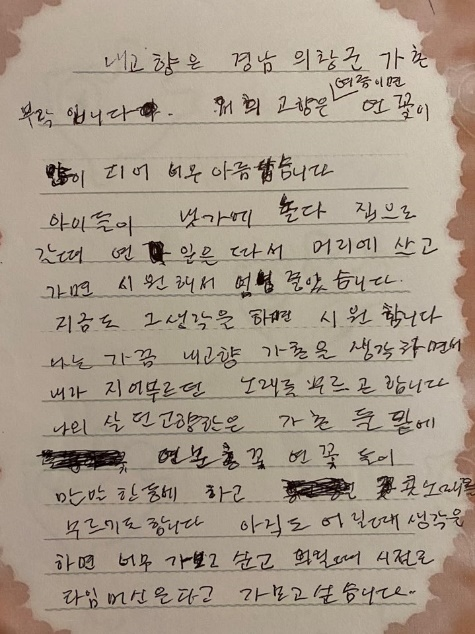 내고향은 경남 의창군 가촌
부락 입니다. 저희 고향은 여름이면 연꽃이
많이 피어 너무 아름답습니다
아이들이 냇가에 놀다 집으로
갈때 연 잎은 따서 머리에 쓰고
가면 시원해서 좋았습니다.
지금도 그생각을 하면 시원 합니다
나는 가끔 내고향 가촌을 생각하면서
내가 지어부르던 노래를 부르곤 합니다
나의 살던고향은 가촌 둑 밑에
연분홍 꽃 연꽃 들이
만발한들에 하고 콧노래를
부르기도합니다 아직도 어릴때 생각을
하면 너무 가보고 싶고 어릴때 시절로
타임머신은타고 가보고싶습니다.